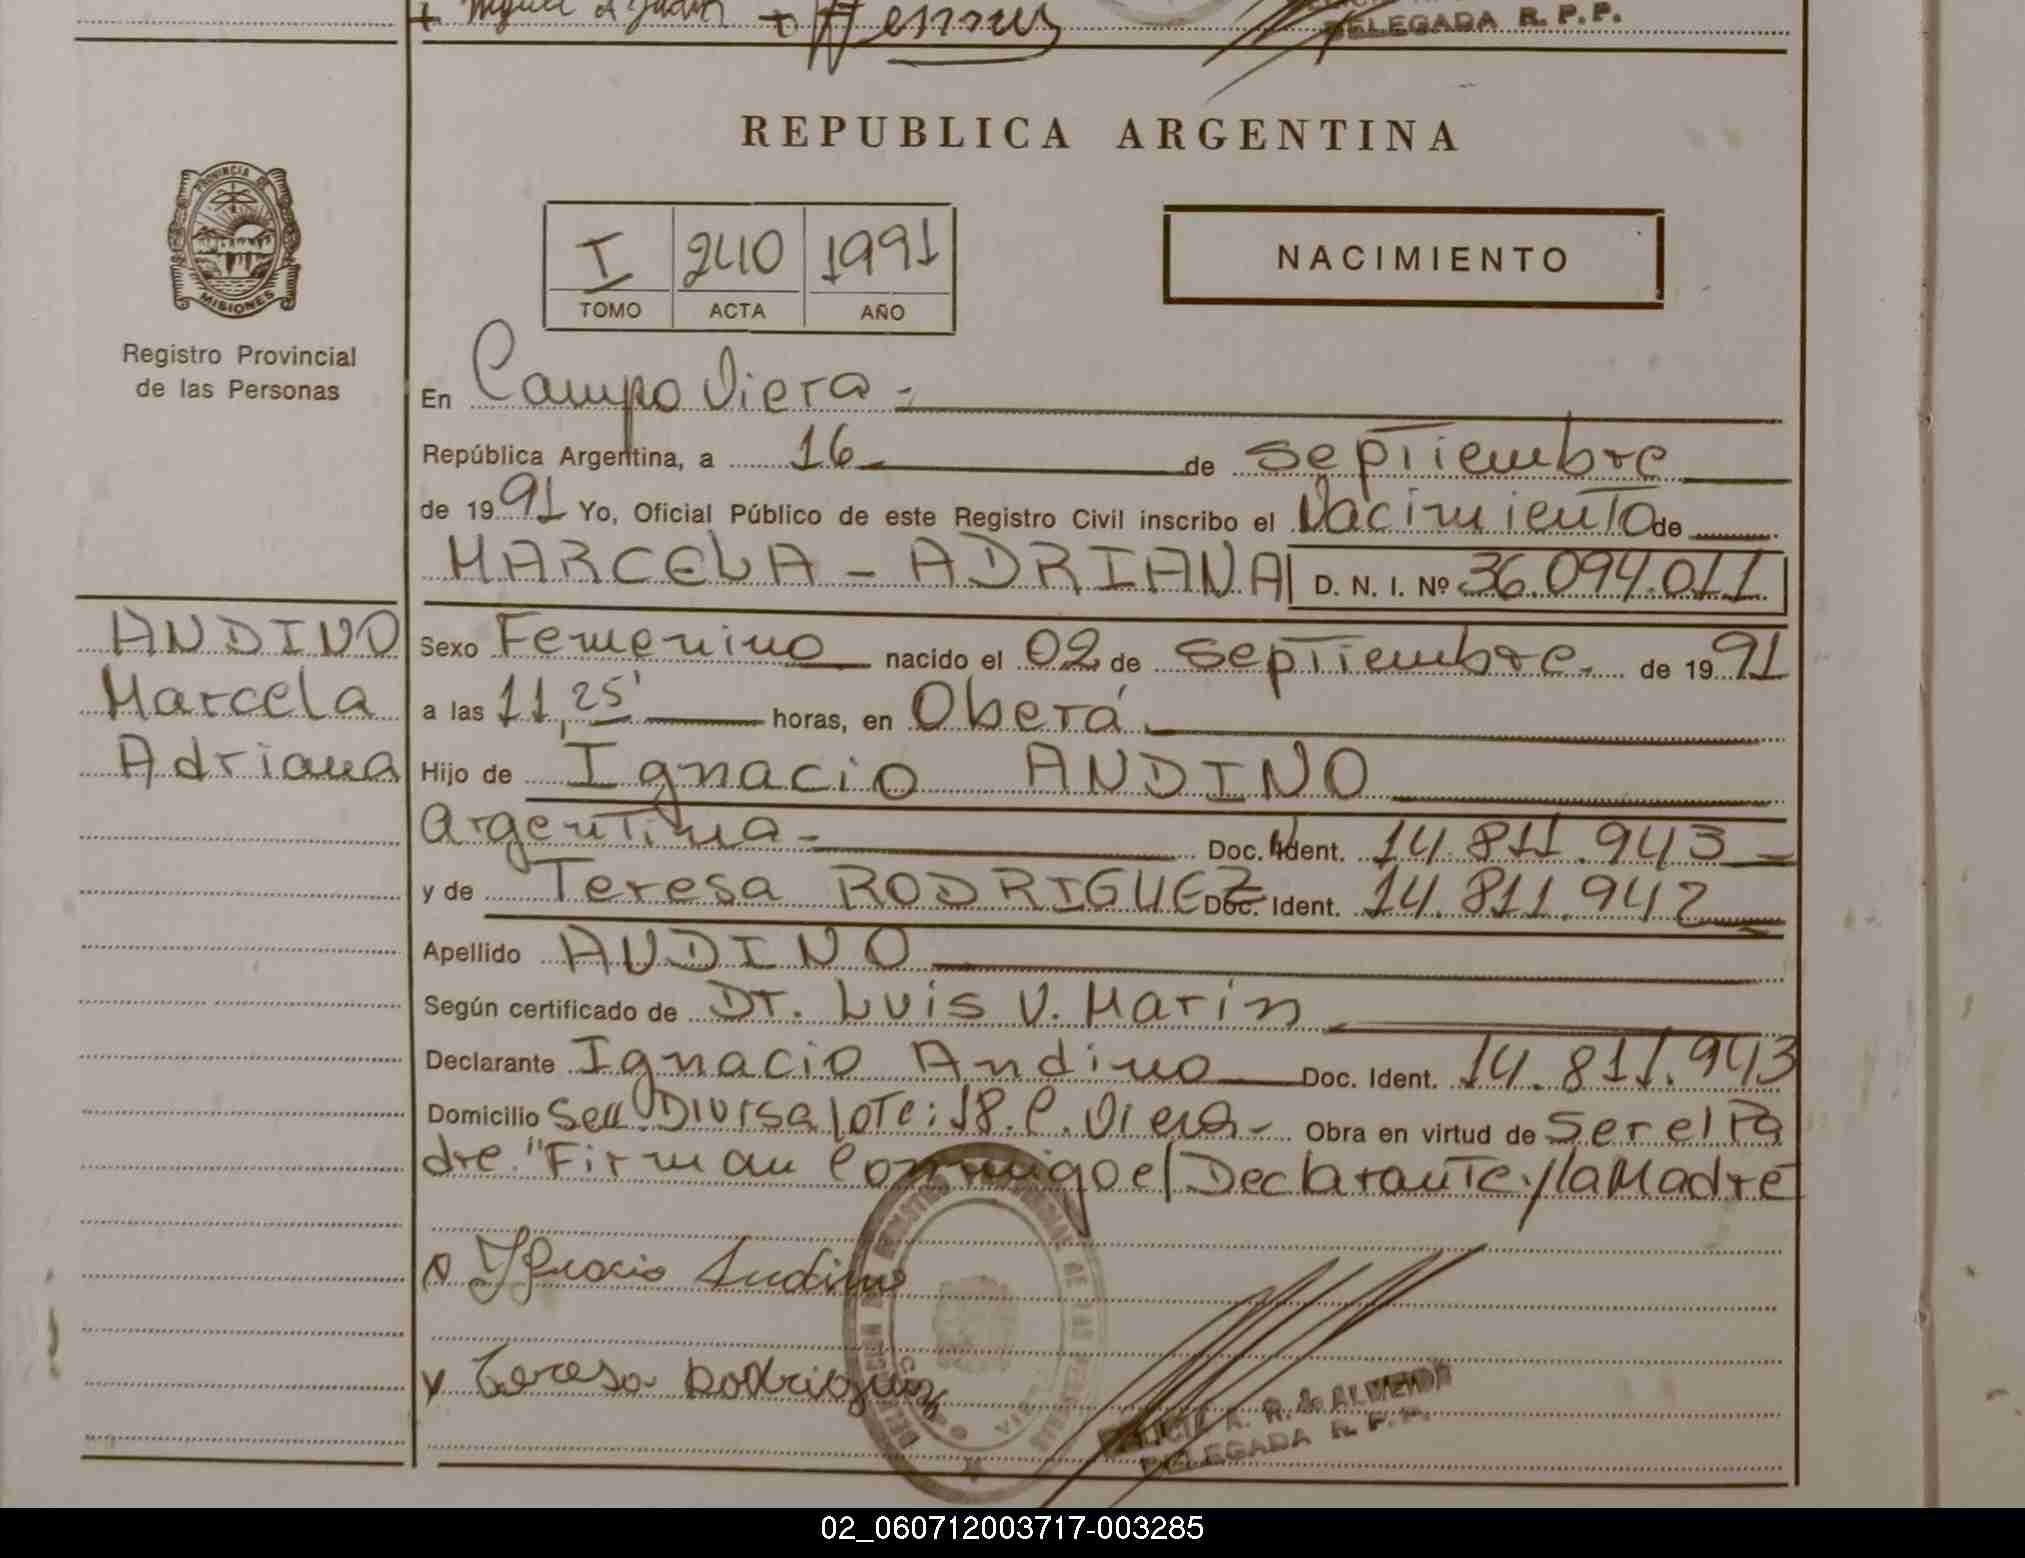 + Miguel A. + 
DELEGADA R. P. P.
REPUBLICA ARGENTINA
PROVINCIA DE
MISIONES
I 240 1991
TOMO ACTA AÑO
NACIMIENTO
Registro Provincial
de las Personas
En Campo Viera -
República Argentina, a 16 de septiembre
de 1991 Yo, Oficial Público de este Registro Civil inscribo el Nacimiento de
MARCELA - ADRIANA D. N. I. Nº 36.094.011
ANDINO
Marcela
Adriana
Sexo Femenino nacido el 02 de septiembre. de 1991
a las 11,25' horas, en Oberá.
Hijo de Ignacio ANDINO
Argentina - Doc. Ident. 14.811.943
y de Teresa RODRIGUEZ Doc. Ident. 14.811.942
Apellido ANDINO
Según certificado de Dr. Luis V. Marin
Declarante Ignacio Andino Doc. Ident. 14.811.943
Domicilio Lote: 18. C. Viera - Obra en virtud de Ser el Pa
dre. "Firman Conmigo el Declarante y la Madre
Ignacio Andino
Teresa Rodriguez
R. A. ALMEIDA
DELEGADA R. P. P.
02_060712003717-003285